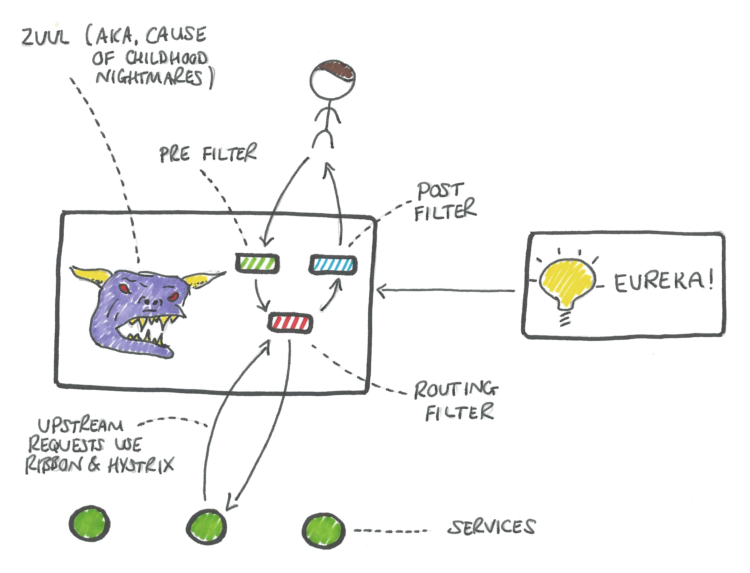 ZUUL (AKA, CAUSE
OF CHILDHOOD
NIGHTMARES)
PRE FILTER
POST
FILTER
EUREKA!
ROUTING
FILTER
UPSTREAM
REQUESTS USE
RIBBON & HYSTRIX
SERVICES